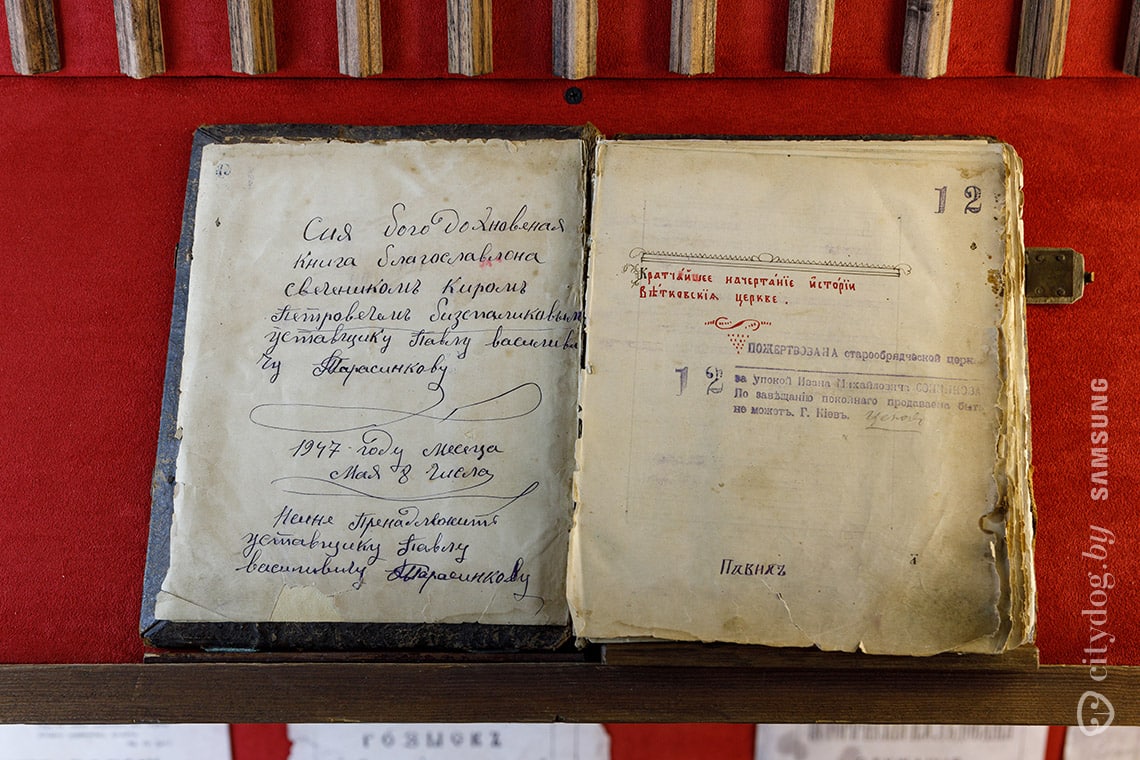 Сия бого Дохновеная
книга благославлона
свеченикомъ Киромъ
Петровечемъ
уставщику Павлу василиви
чу Тарасинкову
1947 году месеца
Мая 8 числа
Ненне Пренадлежитъ
уставщику Павлу
василивичу Тарасинкову
12
Кратчайшее начертаніе исторіи
Вѣтковскія церкве.
ПОЖЕРТВОВАНА старообрядческой церк
12
за упокой Ивана Михайловича
По завѣщанію покойнаго продаваема быть
не можетъ. Г. Кіевъ.
Павихъ
РОЗЫСКЪ
citydog.by SAMSUNG